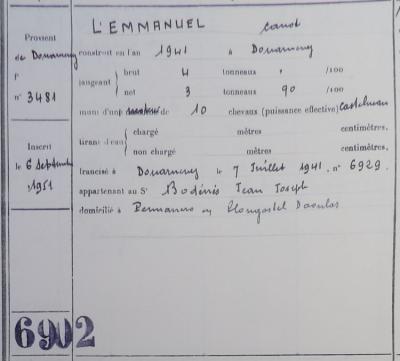 L'EMMANUEL canot
Provient
de Douarnenez
f°
n° 3481
construit en l'an 1941 à Douarnenez
jaugeant brut 4 tonneaux " /100
net 3 tonneaux 90 /100
muni d'un de 10 chevaux (puissance effective)
tirant d'eau chargé mètres centimètres.
non chargé mètres centimètres.
Inscrit
le 6 Septembre
1951
francisé à Douarnenez le 7 Juillet 1941, n° 6929.
appartenant au Sr Bodénès Jean Joseph
domicilié à en Plougastel Daoulas
6902